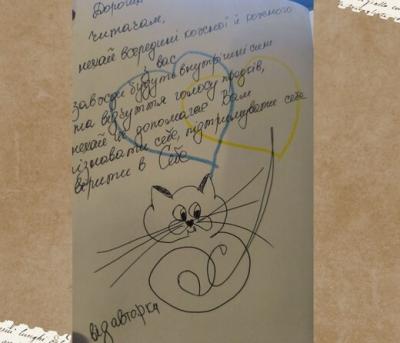 Дорогим
читачам,
нехай всередині кожної й кожного
з вас
завжди будуть внутрішні сили
та відчуття голосу предків,
нехай це допомагає Вам
пізнавати себе, підтримувати себе
вірити в Себе
від авторки